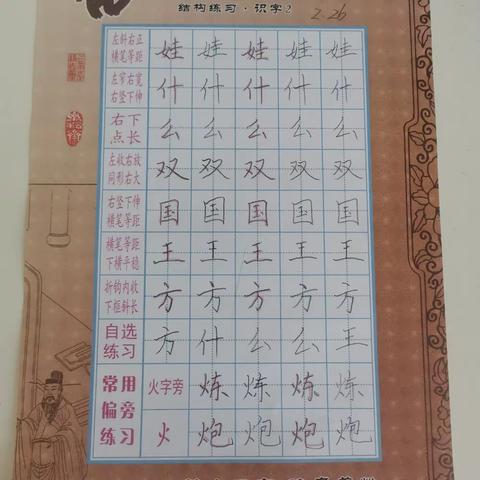 结构练习·识字2
2.26
左斜右正 横笔等距 娃 娃 娃 娃 娃
左窄右宽 右竖下伸 什 什 什 什 什
右下点长 么 么 么 么 么
左收右放 同形右大 双 双 双 双 双
右竖下伸 横笔等距 国 国 国 国 国
横笔等距 下横平稳 王 王 王 王 王
折钩内收 下框斜长 方 方 方 方 方
自选练习 方 什 么 么 王
常用偏旁练习 火字旁 炼 炼 炼 炼
火 炮 炮 炮 炮